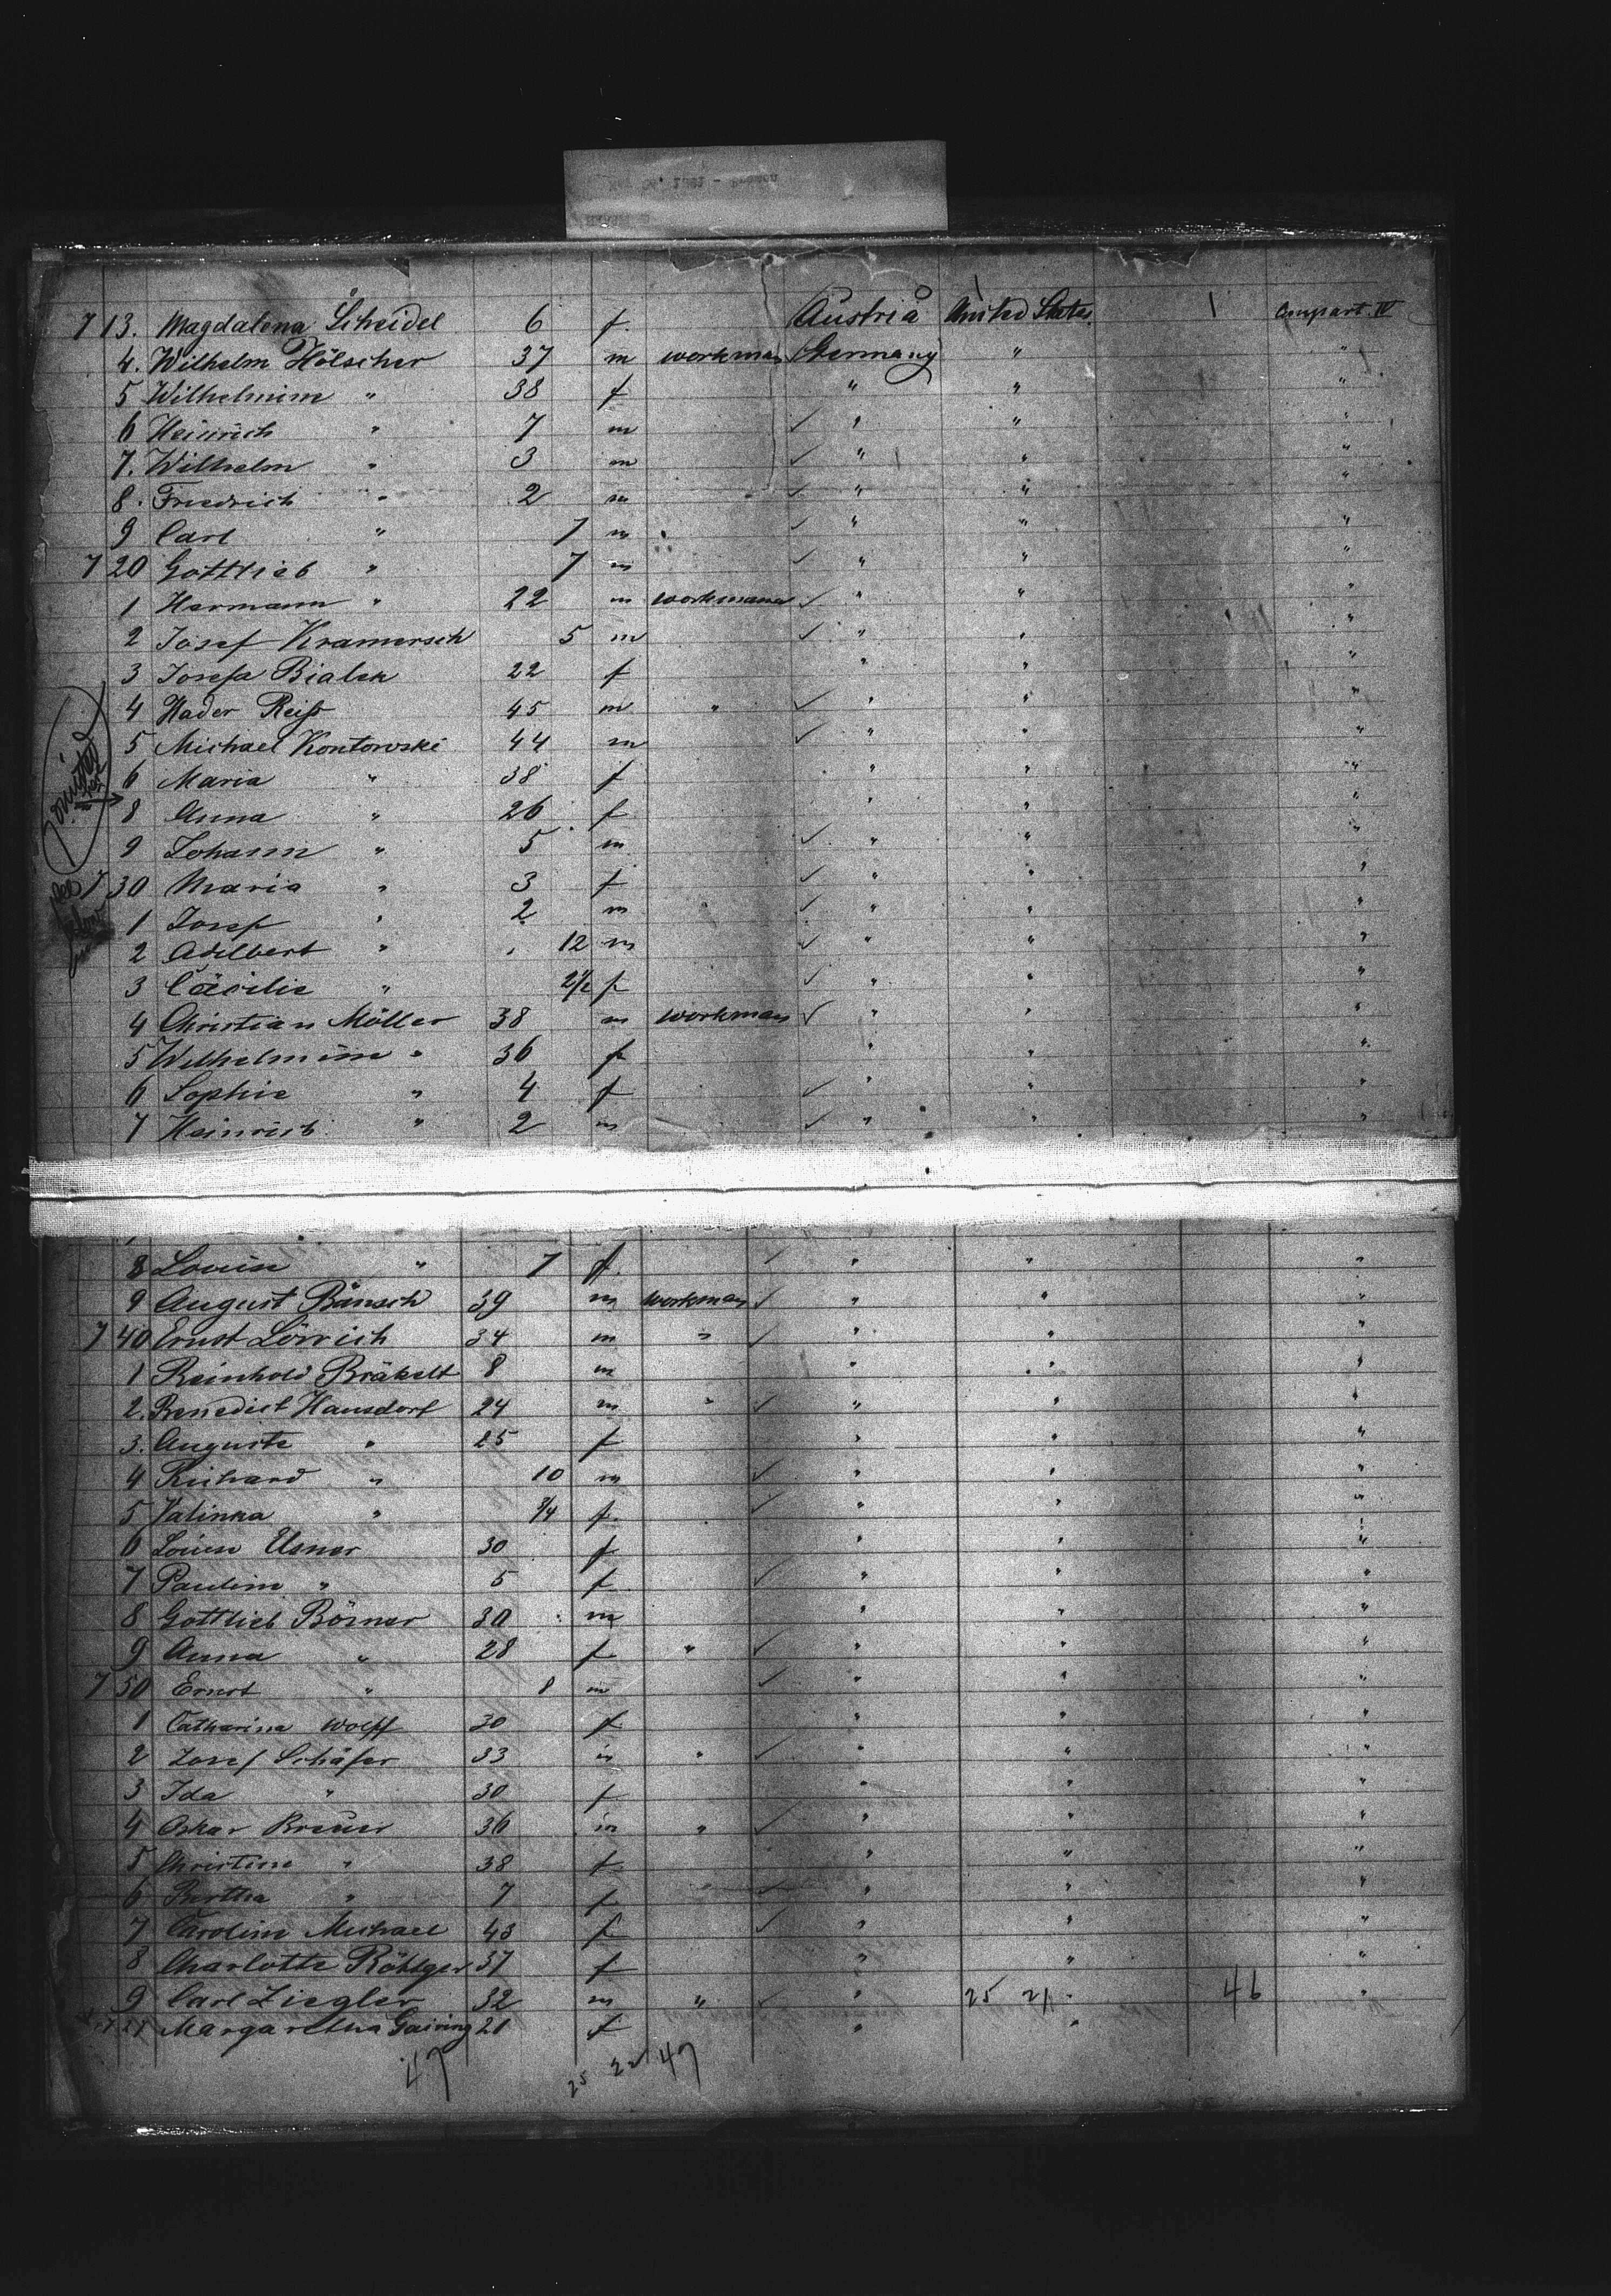 713. Magdalena Scheidel 6 f. Austria United States. 1 Compart. IV
4. Wilhelm Hölscher 37 m workman Germany " "
5 Wilhelmine " 38 f " " "
6 Heinrich " 7 m ✓ " " "
7. Wilhelm " 3 m ✓ " " "
8. Friedrich " 2 m ✓ " " "
9 Carl " 7 m ✓ " " "
720 Gottlieb " 7 m ✓ " " "
1 Hermann " 22 m workmann ✓ " " "
2 Josef Kramersch 5 m ✓ " " "
3 Josefa Bialek 22 f " " "
4 Hader Reiß 45 m " ✓ " " "
5 Michael Kontowski 44 m ✓ " " "
6 Maria " 38 f " " "
omitted
8 Anna " 26 f " " "
9 Johann " 5 m ✓ " " "
730 Maria " 3 f ✓ " " "
1 Josef " 2 m ✓ " " "
2 Adelbert " 12 m ✓ " " "
3 Cäcilie " 2½ f ✓ " " "
4 Christian Möller 38 m workman ✓ " " "
5 Wilhelmine " 36 f " " "
6 Sophie " 4 f ✓ " " "
7 Heinrich " 2 m ✓ " " "
8 Louise " 7 f. ✓ " " "
9 August Bänsch 39 m workman ✓ " " "
740 Ernst Lörrich 34 m " ✓ " " "
1 Reinhold Bräkelt 8 m " " "
2. Benedict Hausdorf 24 m " ✓ " " "
3. Auguste " 25 f " " "
4 Richard " 10 m ✓ " " "
5 Valinka " 3/4 f. ✓ " " "
6 Louise Elsner 30 f " " "
7 Pauline " 5 f ✓ " " "
8 Gottlieb Börner 30 m " " "
9 Anna " 28 f " ✓ " " "
750 Ernst " 8 m ✓ " " "
1 Catharina Wolff 30 f " " "
2 Josef Schäfer 33 m " ✓ " " "
3 Ida " 30 f " " "
4 Oskar Breuer 36 m " ✓ " " "
5 Christine " 38 f " " "
6 Bertha " 7 f ✓ " " "
7 Caroline Michael 43 f ✓ " " "
8 Charlotte Röttger 37 f " " "
9 Carl Ziegler 32 m " ✓ " 25 21 46 "
Margaretha Gairing 21 f " "
47 25 22 47